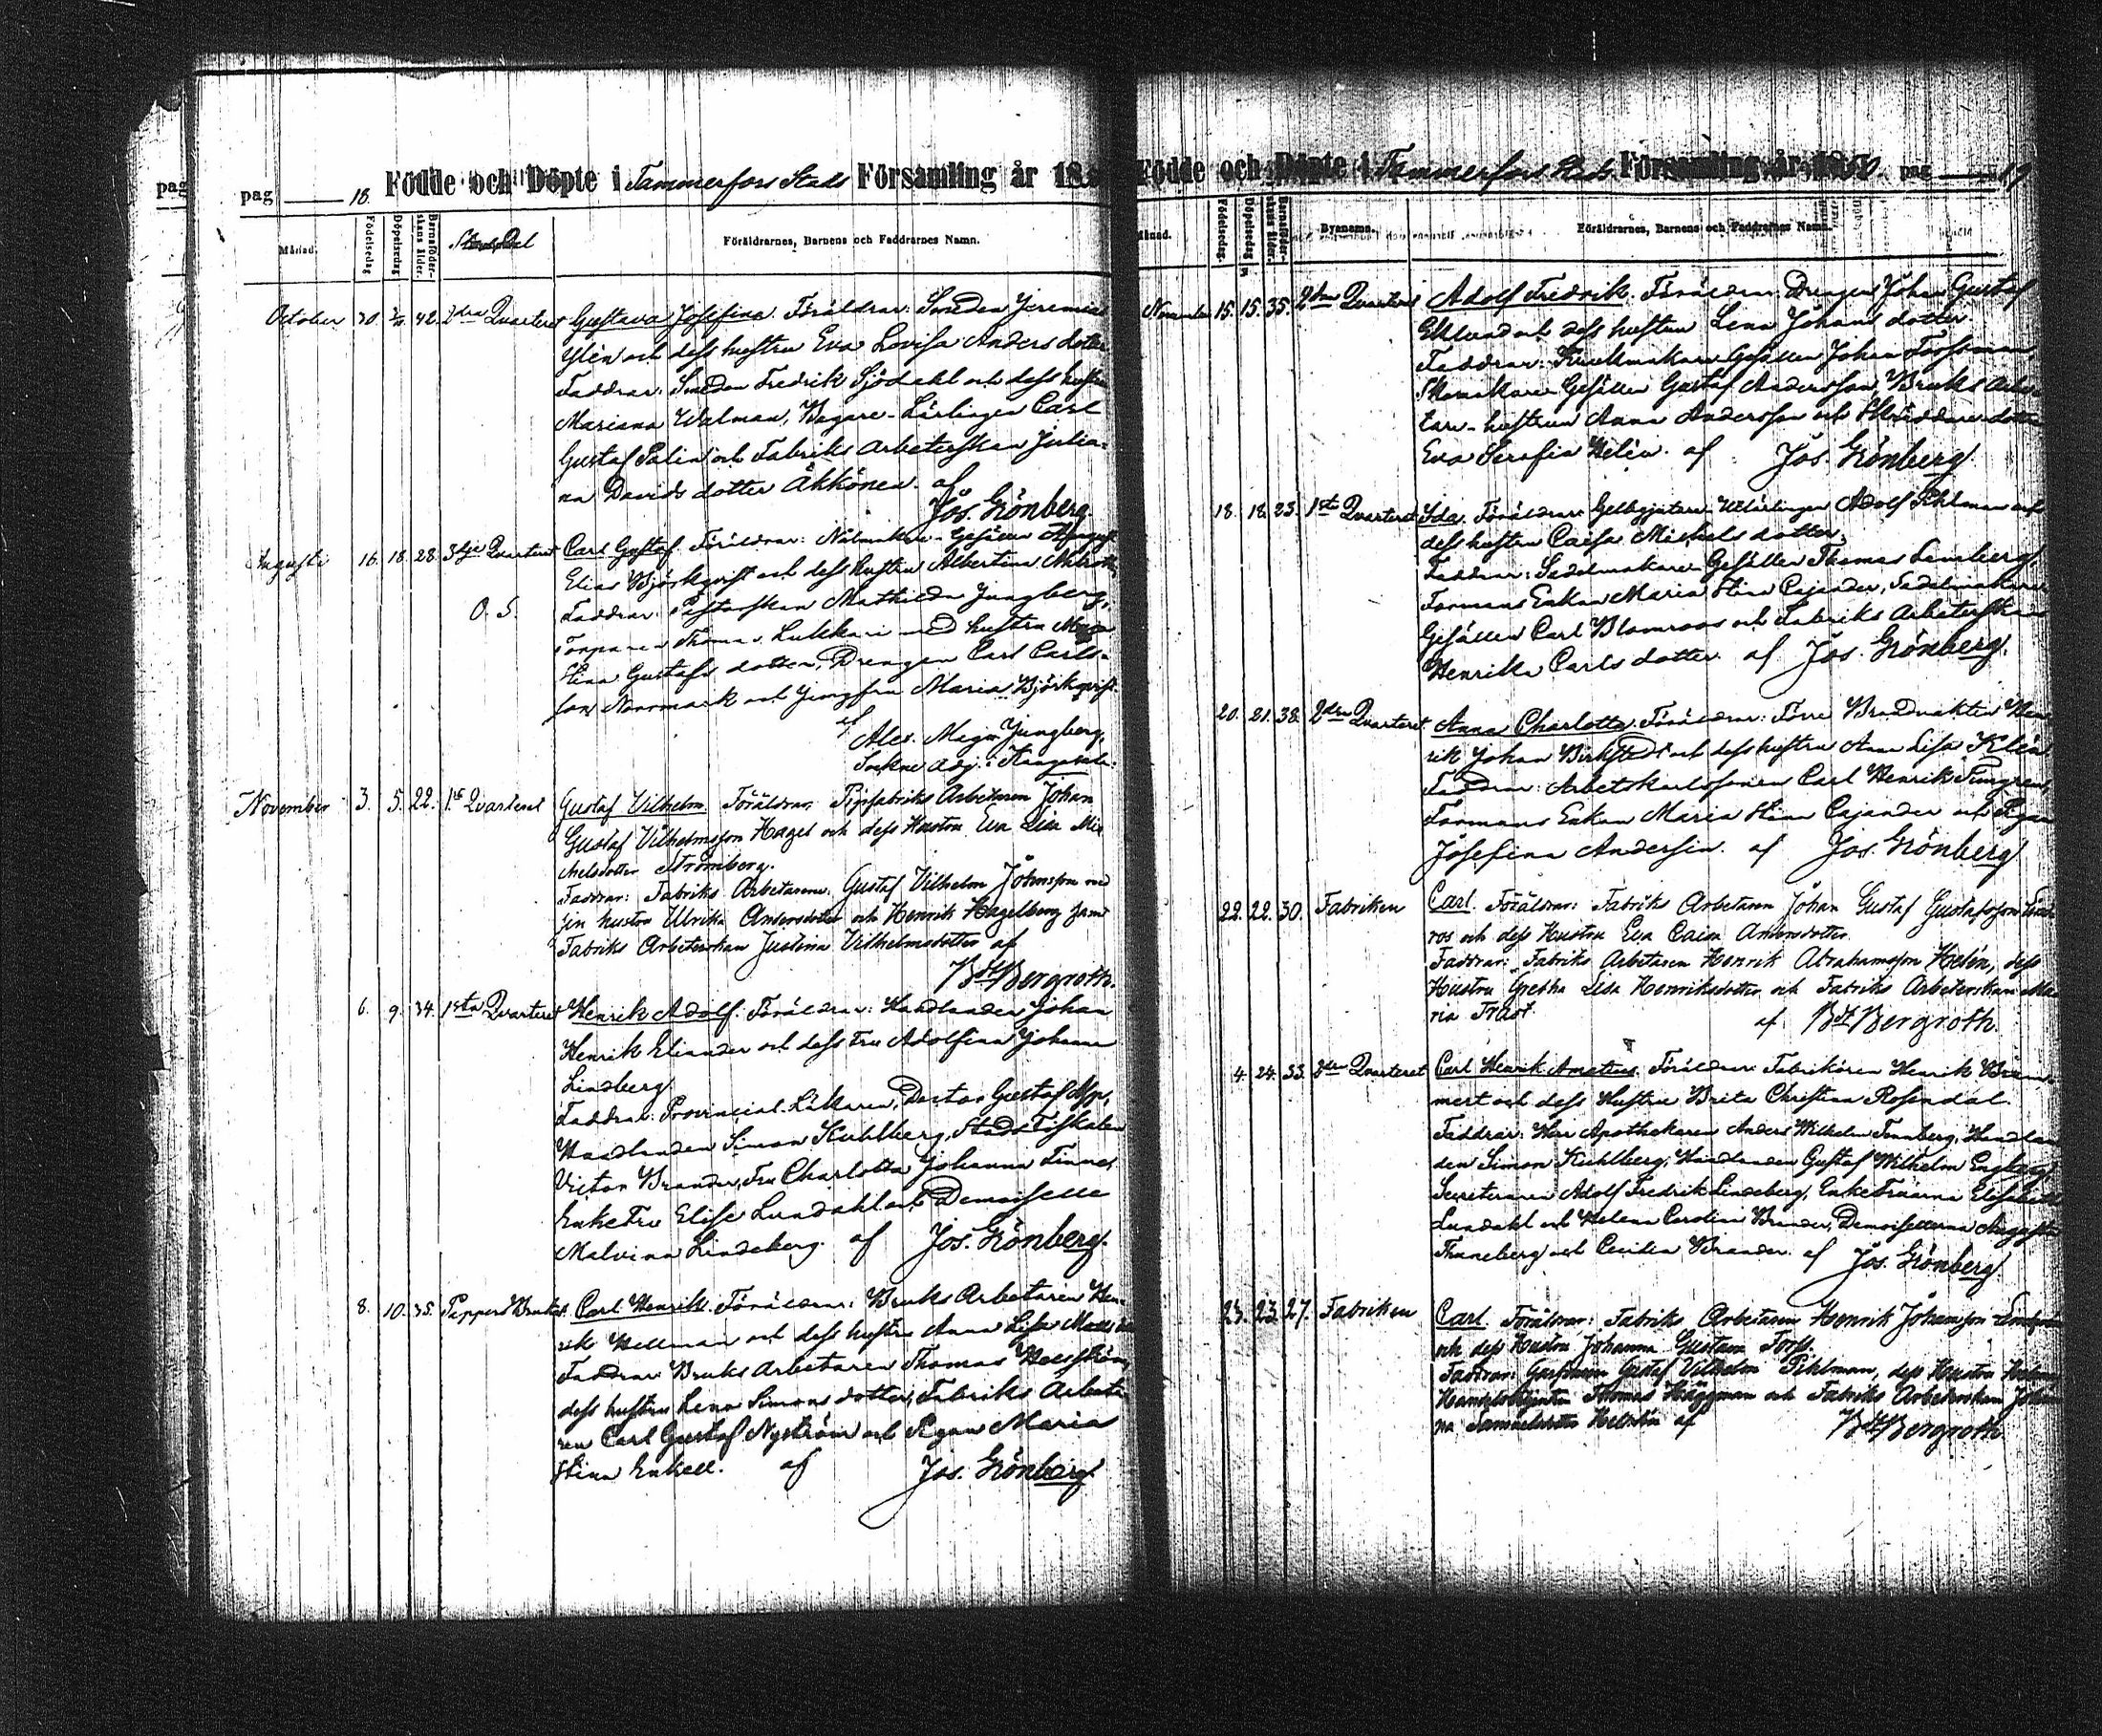 pag
pag 18. Födde och Döpte i Tammerfors Stads Församling år 18
Månad. Födelsedag Döpelsedag Barnaföderskans ålder. Föräldrarnes, Barnens och Faddrarnes Namn.
October 30. 42. 2dra Quarteret Gustava Josefina. Föräldrar: Smeden Jeremias
Ylén och dess hustru Eva Lovisa Andersdotter
Faddrar: Smeden Fredrik Sjödahl och dess hustru
Mariana Walman, Bagare-Lärlingen Carl
Gustaf Palin och Fabriks Arbeterskan Julia-
na Davidsdotter Äkkönen. af
Jos. Grönberg.
Augusti 16. 18. 28. 3dje Quarteret Carl Gustaf. Föräldrar: Nålmakare-Gesällen
Elias Björkqvist och dess hustru Albertina
O. S. Faddrar: Pastorskan Mathilda Ljungberg,
Torparen Thomas Lukkari med hustru Maja
Stina Gustafsdotter, Drengen Carl Carls-
son Norrmark och Jungfru Maria Björkqvist
af
Alex. Magn. Ljungberg,
Sockne Adj. i Kangasala.
November 3. 5. 22. 1sta Quarteret Gustaf Vilhelm. Föräldrar: Pipfabriks Arbetaren Johan
Gustaf Vilhelmsson Hagel och dess Hustru Eva Lisa Mi-
chelsdotter Strömberg.
Faddrar: Fabriks Arbetarene Gustaf Vilhelm Johnsson med
sin hustru Ulrika Andersdotter och Henrik Hagelberg samt
Fabriks Arbeterskan Justina Vilhelmsdotter af
Bergroth.
6. 9. 34. 1sta Quarteret Henrik Adolf. Föräldrar: Handlanden Johan
Henrik Eliander och dess Fru Adolfina Johanna
Lindberg.
Faddrar: Provincial-Läkaren, Doctor Gustaf
Handlanden Simon Kuhlberg, Stads Fiskalen
Victor Brander, Fru Charlotta Johanna
EnkeFru Elise Lundahl och Demoiselle
Malvina Lindeberg. af Jos. Grönberg.
8. 10. 35. Pappers Bruket Carl Henrik. Föräldrar: Bruks Arbetaren Hen-
rik Hellman och dess hustru Anna Lisa
Faddrar: Bruks Arbetaren Thomas Hellström,
dess hustru Lena Simonsdotter, Fabriks Arbeta-
ren Carl Gustaf Nyström och Pigan Maria
Stina Enkell. af Jos. Grönberg
Födde och Döpte i Tammerfors Stads Församling år 1850. pag 19
Månad. Födelsedag. Döpelsedag Barnaföderskans ålder. Bynamn. Föräldrarnes, Barnens och Faddrarnes Namn.
November 15. 15. 35. 2dra Quarteret Adolf Fredrik. Föräldrar: Drengen Johan Gustaf
Eklund och dess hustru Lena Johansdotter.
Faddrar: Gesällen Johan Forssman,
Skomakare Gesällen Gustaf Andersson, Bruks Arbe-
tare-hustrun Anna Andersson och Skräddaredotter
Eva Serafia Helén. af Jos. Grönberg
18. 18. 23. 1sta Quarteret Ida. Föräldrar: Gelbgjutare-Lärlingen Adolf Pihlman och
dess hustru Caisa Michelsdotter.
Faddrar: Sadelmakare-Gesällen Thomas Lemberg,
Formans Enkan Maria Stina Cajander, Sadelmakare
Gesällen Carl Blomroos och Fabriks Arbeterskan
Henrika Carlsdotter. af Jos. Grönberg.
20. 21. 38. 2dra Quarteret Anna Charlotta. Föräldrar: Förre Brandvakten Hen-
rik Johan Birkstedt och dess hustru Anna Lisa Klén
Faddrar: Arbetskarlssonen Carl Henrik
Formans Enkan Maria Stina Cajander och Pigan
Josefina Andersin. af Jos. Grönberg
22. 22. 30. Fabriken Carl. Föräldrar: Fabriks Arbetaren Johan Gustaf Gustafsson
ros och dess Hustru Eva Caisa Andersdotter.
Faddrar: Fabriks Arbetaren Henrik Abrahamsson Helén, dess
Hustru Gretha Lisa Henriksdotter och Fabriks Arbeterskan Ma-
ria Trast. af Bergroth
4. 24. 33. 2dra Quarteret Carl Henrik Amatus. Föräldrar: Fabrikören Henrik
och dess Hustru Brita Christina Rosendal.
Faddrar: Herr Apothekaren Anders Wilhelm Tennberg, Handlan-
den Simon Kuhlberg, Handlanden Gustaf Wilhelm Engberg
Secreteraren Adolf Fredrik Lindeberg, EnkeFruarna Elisabeth
Lundahl och Helena Carolina Brander, Demoisellerna Augusta
Thuneberg och Cecilia Brander. af Jos. Grönberg
23. 23. 27. Fabriken Carl. Föräldrar: Fabriks Arbetaren Henrik Johansson
och dess Hustru Johanna Gustava Forss.
Faddrar: Gustaf Vilhelm Pihlman, dess Hustru
Thomas Häggman och Fabriks Arbeterskan Johan-
na Samuelsdotter af Bergroth